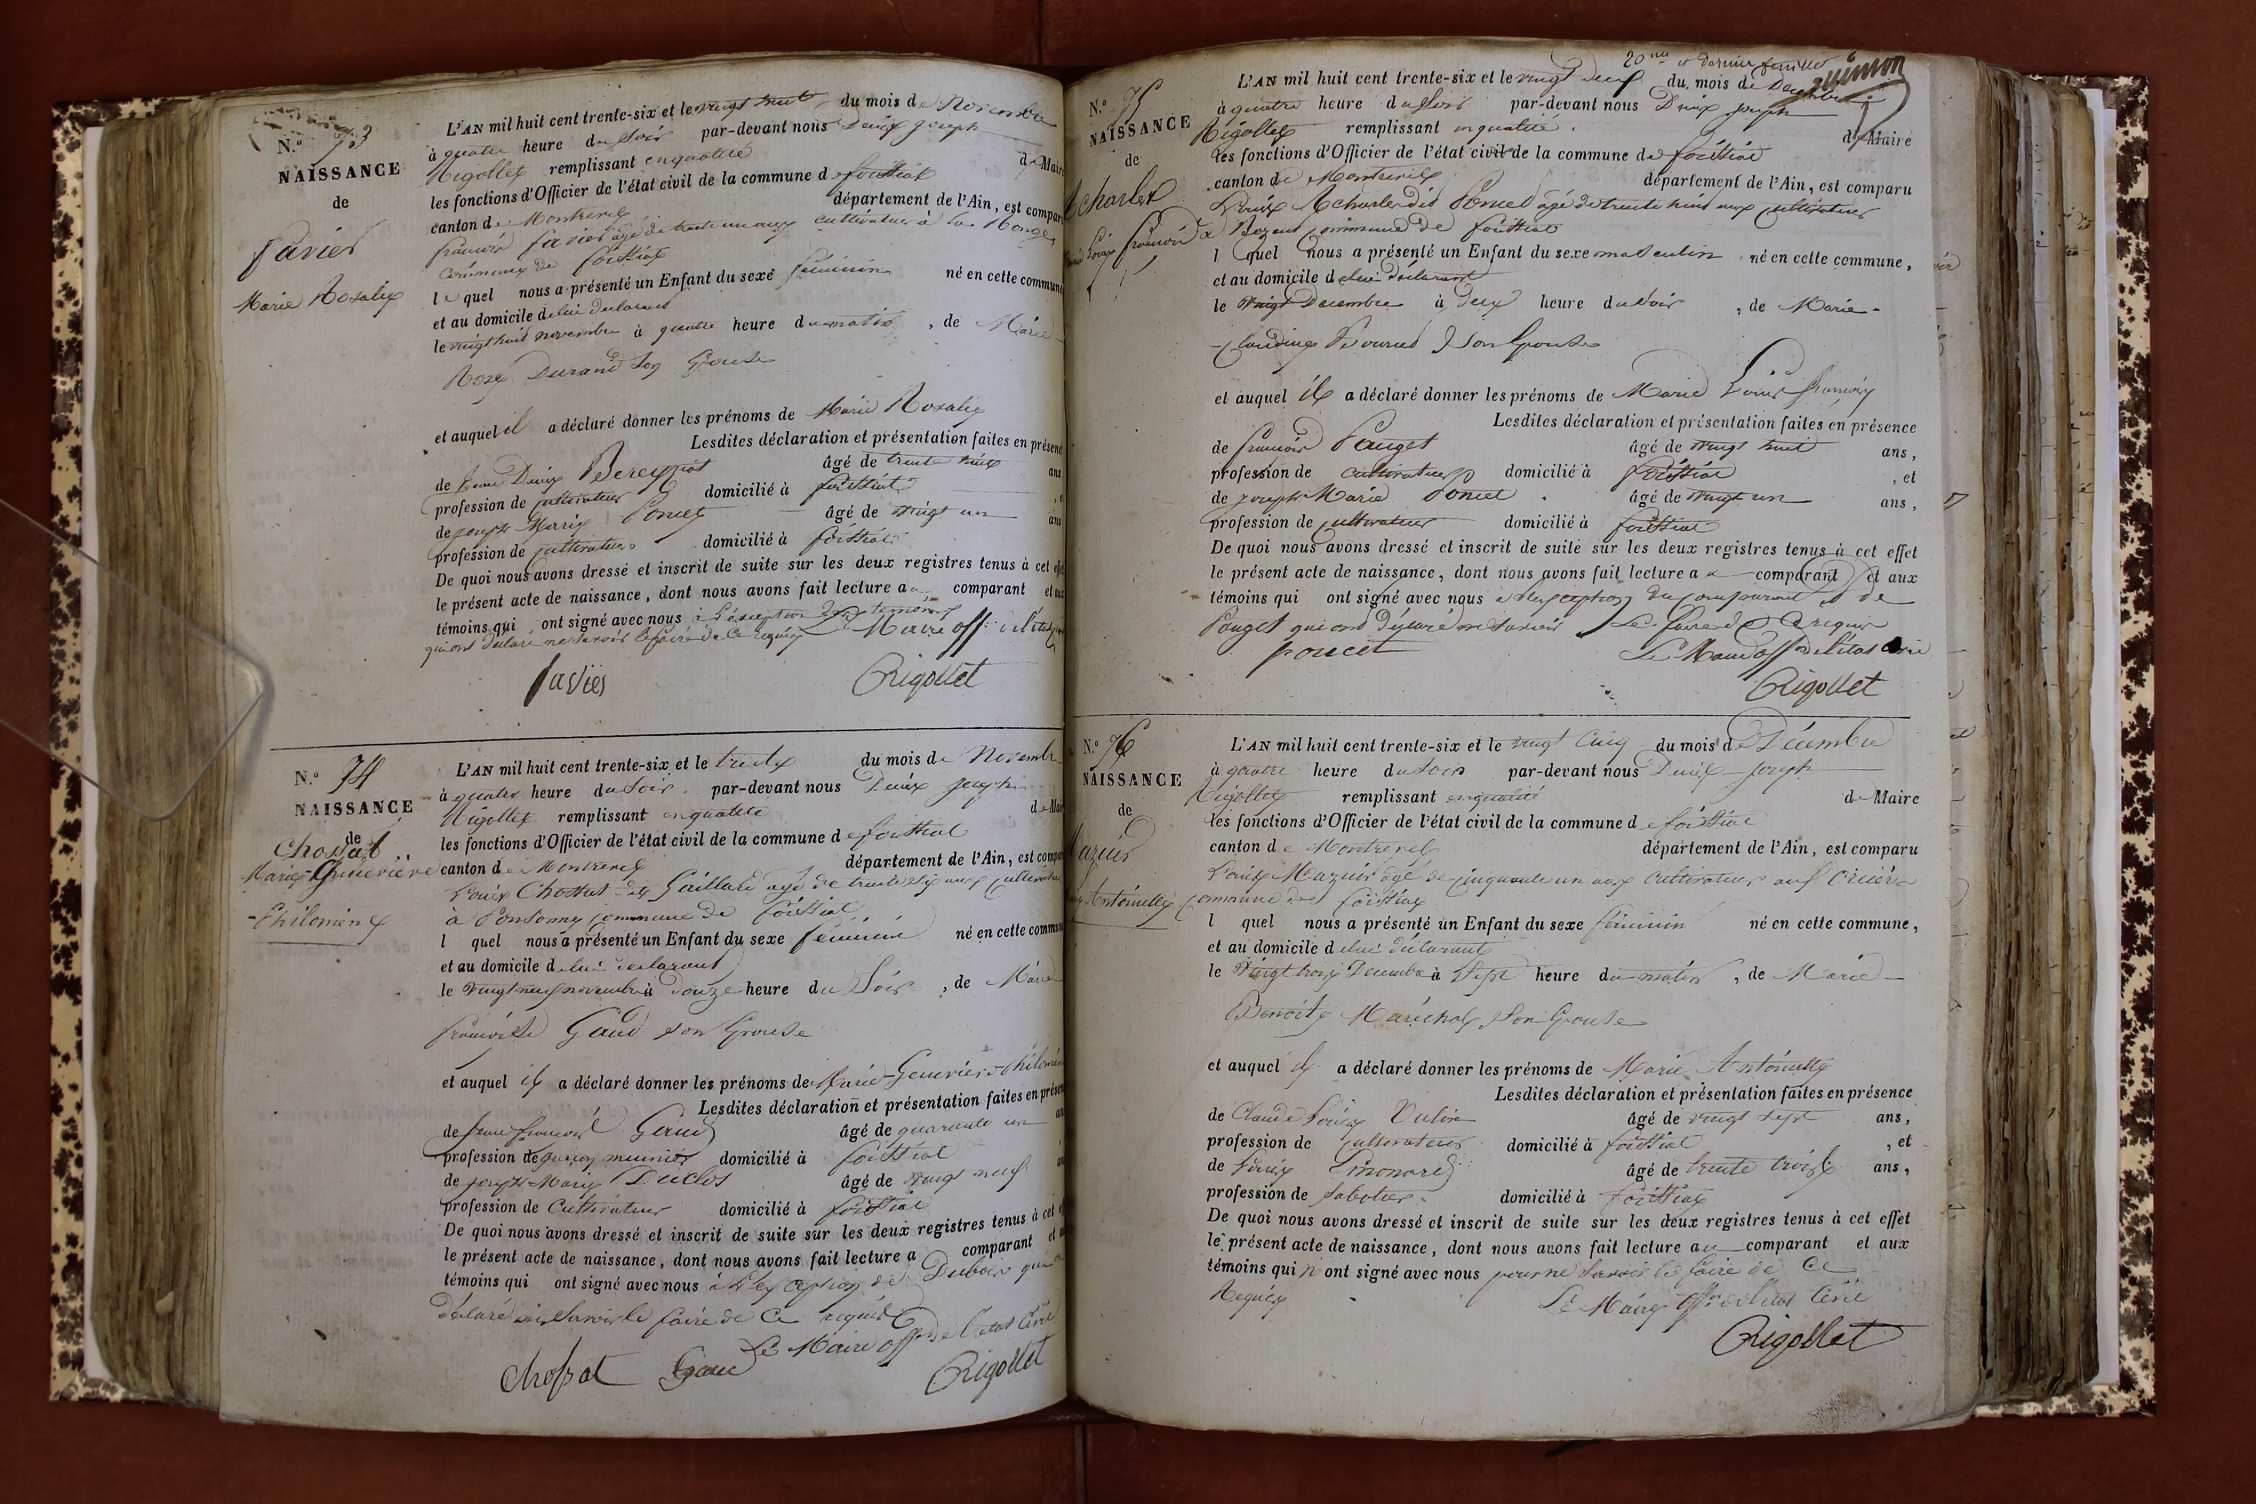 N.° 73
NAISSANCE
de
favier
Marie Rosalie
L'AN mil huit cent trente-six et le vingt huit du mois de Novembre
à quatre heure du Soir par-devant nous Denis Joseph
Rigollet remplissant en qualité de Maire
les fonctions d'Officier de l'état civil de la commune de foissiat
canton de Montrevel département de l'Ain, est comparu
françois favier âgé de trente un ans cultivateur à la
commune de foissiat
le quel nous a présenté un Enfant du sexe féminin né en cette commune
et au domicile de lui déclarant
le vingt huit novembre à quatre heure du matin, de Marie
Roze Durand son Epouse
et auquel il a déclaré donner les prénoms de Marie Rosalie
Lesdites déclaration et présentation faites en présence
de Denis Bereyziat âgé de trente ans
profession de cultivateur domicilié à foissiat
de joseph Marie Poncet âgé de vingt un ans
profession de cultivateur domicilié à foissiat
De quoi nous avons dressé et inscrit de suite sur les deux registres tenus à cet effet
le présent acte de naissance, dont nous avons fait lecture au comparant et aux
témoins qui ont signé avec nous à l'exception des témoins
qui ont déclaré ne savoir le faire de ce requis Le Maire off. de l'état
favier Rigollet
N.° 74
NAISSANCE
de
Chossat
Marie Genevieve
Philomène
L'AN mil huit cent trente-six et le trente du mois de Novembre
à quatre heure du Soir. par-devant nous Denis Joseph
Rigollet remplissant en qualité de Maire
les fonctions d'Officier de l'état civil de la commune de foissiat
canton de Montrevel département de l'Ain, est comparu
Louis Chossat dit Gaillard âgé de trente six ans cultivateur
à Ponsonny commune de foissiat
l quel nous a présenté un Enfant du sexe féminin né en cette commune
et au domicile de lui déclarant
le vingt neuf novembre à douze heure du Soir, de Marie
françoise Gaud son Epouse
et auquel il a déclaré donner les prénoms de Marie Geneviève Philomène
Lesdites déclaration et présentation faites en présence
de françois Gaud âgé de quarante un
profession de garçon meunier domicilié à foissiat
de joseph Marie Duclos âgé de vingt neuf
profession de Cultivateur domicilié à foissiat
De quoi nous avons dressé et inscrit de suite sur les deux registres tenus à cet
le présent acte de naissance, dont nous avons fait lecture a comparant et
témoins qui ont signé avec nous à l'exception de Dubois qui a
déclaré ne savoir le faire de ce requis
Le Maire off. de l'état Civil
Chossat Gaud Rigollet
20me et dernier feuillet
N.° 75
NAISSANCE
de
Acharlet
Marie Louis françois
L'AN mil huit cent trente-six et le vingt deux du mois de Decembre
à quatre heure du Soir par-devant nous Denis Joseph
Rigollet remplissant en qualité. de Maire
les fonctions d'Officier de l'état civil de la commune de foissiat
canton de Montrevel département de l'Ain, est comparu
Acharlet dit Poncet âgé de trente huit ans cultivateur
à commune de foissiat
l quel nous a présenté un Enfant du sexe masculin né en cette commune,
et au domicile de lui déclarant
le vingt Decembre à deux heure du soir, de Marie-
-Claudine son Epouse
et auquel il a déclaré donner les prénoms de Marie Louis françois
Lesdites déclaration et présentation faites en présence
de françois Pauget âgé de vingt huit ans,
profession de cultivateur domicilié à foissiat, et
de joseph Marie Poncet. âgé de vingt un ans,
profession de cultivateur domicilié à foissiat
De quoi nous avons dressé et inscrit de suite sur les deux registres tenus à cet effet
le présent acte de naissance, dont nous avons fait lecture a comparant et aux
témoins qui ont signé avec nous à l'exception du comparant et de
Pauget qui ont déclaré ne savoir le faire de ce requis
poncet Le Maire off. de l'état civil
Rigollet
N.° 76
NAISSANCE
de
Mazuir
Marie Antoinette
L'AN mil huit cent trente-six et le vingt Cinq du mois de Décembre
à quatre heure du Soir par-devant nous Denis Joseph
Rigollet remplissant en qualité de Maire
les fonctions d'Officier de l'état civil de la commune de foissiat
canton de Montrevel département de l'Ain, est comparu
Louis Mazuir âgé de cinquante un ans Cultivateur
commune de foissiat
l quel nous a présenté un Enfant du sexe féminin né en cette commune,
et au domicile de lui déclarant
le vingt trois Decembre à Sept heure du matin, de Marie
Benoite Maréchal son Epouse
et auquel il a déclaré donner les prénoms de Marie Antoinette
Lesdites déclaration et présentation faites en présence
de Claude Louis Vulin âgé de vingt sept ans,
profession de cultivateur domicilié à foissiat, et
de Louis âgé de trente trois ans,
profession de Sabotier. domicilié à foissiat
De quoi nous avons dressé et inscrit de suite sur les deux registres tenus à cet effet
le présent acte de naissance, dont nous avons fait lecture au comparant et aux
témoins qui n'ont signé avec nous pour ne savoir le faire de Ce
Requis Le Maire off. de l'état Civil
Rigollet